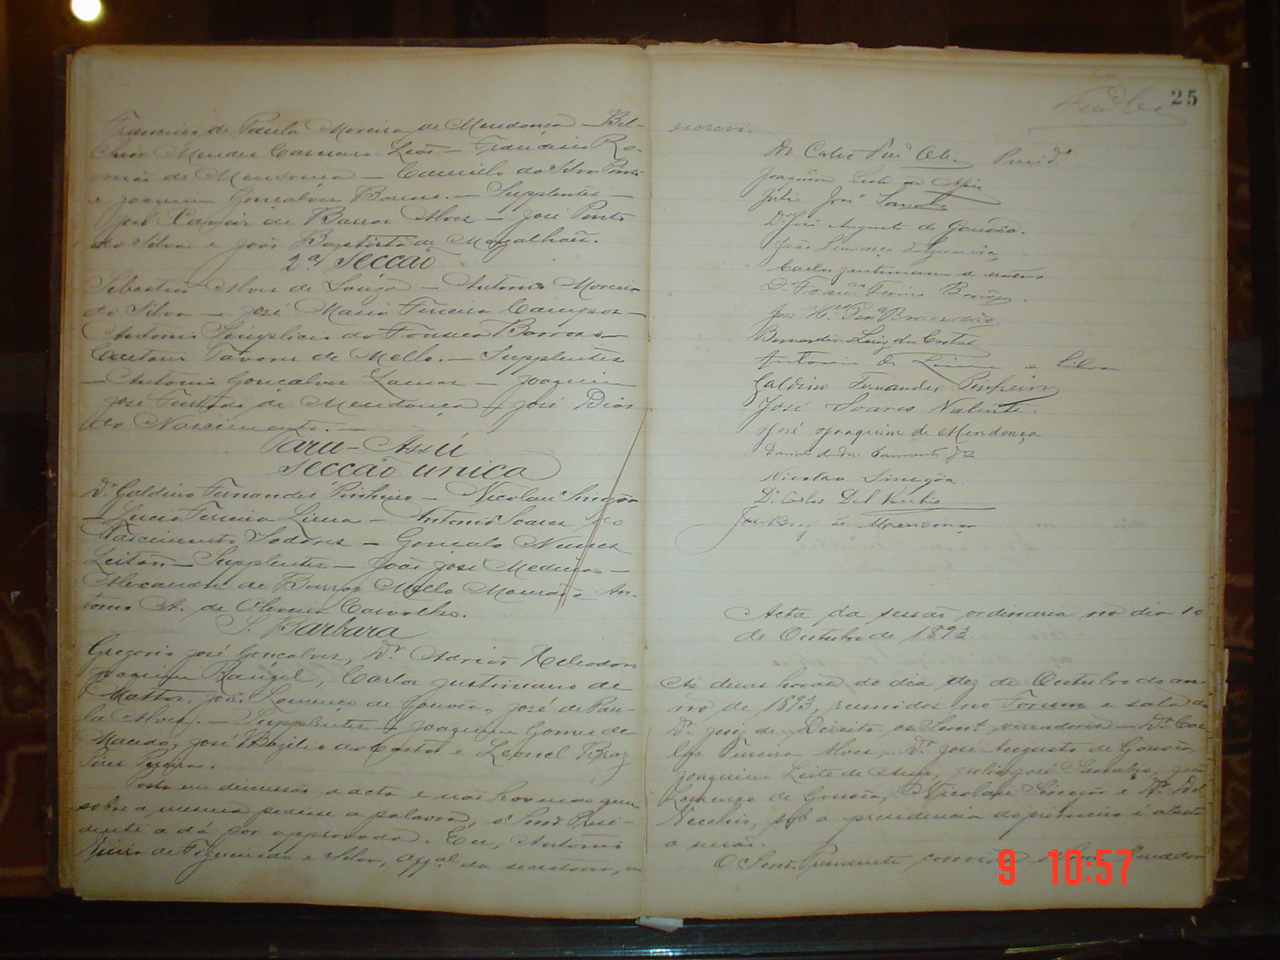 Francisco de Paula Moreira de Mendonça — Bel-
chior Mendes Carneiro Leão — Francisco Ro-
mão de Mendonça — Camillo da Silva Pinto
e Joaquim Gonçalves Barros. — Supplentes —
José Xavier de Barros Alves — José Pinto
da Silva e João Baptista de Magalhães.
2ª Secção
Sebastião Alves de Souza — Antonio Moreira
da Silva — José Maria Ferreira Campos —
Antonio Simplicio da Fonseca Barros —
Caetano Tavora de Mello. — Supplentes
— Antonio Gonçalves Lamas — Joaquim
José Furtado de Mendonça — José Dias
do Nascimento. —
Taru-Assú
Secção unica
Dr. Galdino Fernandes Pinheiro — Nicolau
— Lucio Ferreira Lima — Antonio Soares do
Nascimento — Gonçalo Nunes
Leitão — Supplentes — João José Medeiros —
Alexandre de Barros Mello Mourão e An-
tonio A. de Oliveira Carvalho.
S. Barbara
Gregorio José Gonçalves, Dr. Adrião Heliodoro
Joaquim Rangel, Carlos Justiniano de
Mattos, João Lourenço de Gouvêa, José de Pau-
la Alves. — Supplentes — Joaquim Gomes de
Macedo, José Basilio da Costa e Leonel Braz
Pires
Posta em discussão a acta e não havendo quem
sobre a mesma pedisse a palavra, o Senr. Presi-
dente a dá por approvada. Eu, Antonio
Vieira de Figueiredo e Silva, off.al da secretaria, a
25
escrevi.
Presid.
Joaquim Leite de
Julio José
Dr. José Augusto de Gouvêa.
João Lourenço de Gouvêa
Carlos Justiniano de Mattos
Bernardino Luiz da Costa
Antonio de Lima e Silva
Galdino Fernandes Pinheiro
José Soares Valente.
José Joaquim de Mendonça
Nicolau
Dr. Carlos Del Vecchio
de Mendonça
Acta da sessão ordinaria no dia 10
de Outubro de 1893
Ás duas horas do dia dez de Outubro do an-
no de 1893, reunidos no Forum e sala do
Dr. Juiz de Direito os Senr.s vereadores Dr. Car-
los Pereira Alves, Dr. José Augusto de Gouvêa,
Joaquim Leite de Julio José João
Lourenço de Gouvêa, Nicolau e Dr. Del
Vecchio, sob a presidencia do primeiro é aberta
a sessão.
O Senr. Presidente
9 10:57